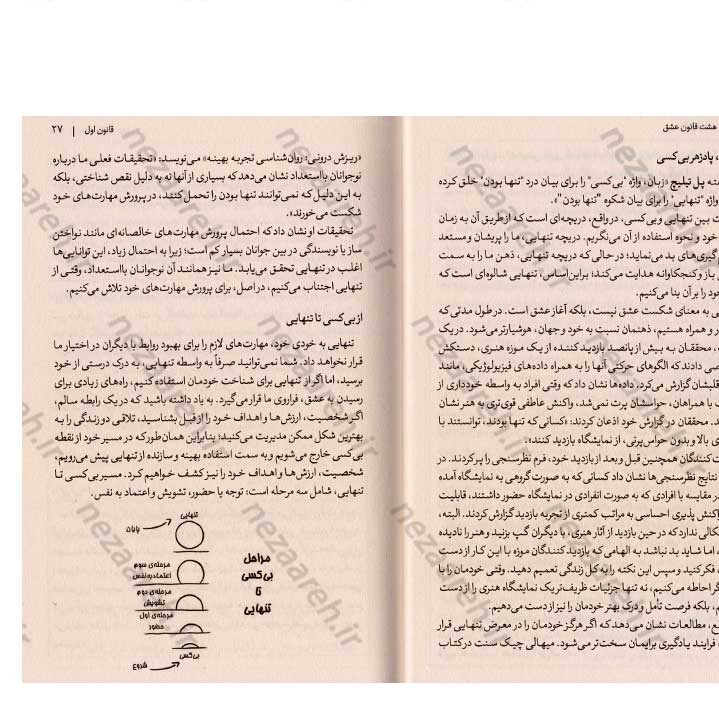 هشت قانون عشق
، پادزهر بی‌کسی
ته پل تیلیچ «زبان، واژه "بی‌کسی" را برای بیان درد "تنها بودن" خلق کرده
واژه "تنهایی" را برای بیان شکوه "تنها بودن"».
ت بین تنهایی و بی‌کسی، در واقع، دریچه‌ای است که از طریق آن به زمان
خود و نحوه استفاده از آن می‌نگریم. دریچه تنهایی، ما را پریشان و مستعد
گیری‌های بد می‌نماید؛ در حالی که دریچه تنهایی، ذهن ما را به سمت
باز و کنجکاوانه هدایت می‌کند؛ بر این اساس، تنهایی شالوده‌ای است که
خود را بر آن بنا می‌کنیم.
ی به معنای شکست عشق نیست، بلکه آغاز عشق است. در طول مدتی که
ر و همراه هستیم، ذهنمان نسبت به خود و جهان، هوشیارتر می‌شود. در یک
ه، محققان به بیش از پانصد بازدیدکننده از یک موزه هنری، دستکش
صی دادند که الگوهای حرکتی آنها را به همراه داده‌های فیزیولوژیکی، مانند
قلبشان گزارش می‌کرد. داده‌ها نشان داد که وقتی افراد به واسطه خودداری از
ت با همراهان، حواسشان پرت نمی‌شد، واکنش عاطفی قوی‌تری به هنر نشان
د. محققان در گزارش خود اذعان کردند: «کسانی که تنها بودند، توانستند با
ی بالا و بدون حواس‌پرتی، از نمایشگاه بازدید کنند».
ت کنندگان همچنین قبل و بعد از بازدید خود، فرم نظرسنجی را پر کردند. در
نتایج نظرسنجی‌ها نشان داد کسانی که به صورت گروهی به نمایشگاه آمده
در مقایسه با افرادی که به صورت انفرادی در نمایشگاه حضور داشتند، قابلیت
واکنش پذیری احساسی به مراتب کمتری از تجربه بازدید گزارش کردند. البته،
کالی ندارد که در حین بازدید از آثار هنری، با دیگران گپ بزنید و هنر را نادیده
، اما شاید بد نباشد به الهامی که بازدیدکنندگان موزه با این کار از دست
، فکر کنید و سپس این نکته را به کل زندگی تعمیم دهید. وقتی خودمان را با
گر احاطه می‌کنیم، نه تنها جزئیات ظریف‌تر یک نمایشگاه هنری را از دست
م، بلکه فرصت تأمل و درک بهتر خودمان را نیز از دست می‌دهیم.
ع، مطالعات نشان می‌دهد که اگر هرگز خودمان را در معرض تنهایی قرار
، فرایند یادگیری برایمان سخت‌تر می‌شود. میهالی چیک سنت در کتاب
قانون اول | ۲۷
«ریزش درونی: روان‌شناسی تجربه بهینه» می‌نویسد: «تحقیقات فعلی ما درباره
نوجوانان بااستعداد نشان می‌دهد که بسیاری از آنها نه به دلیل نقص شناختی، بلکه
به این دلیل که نمی‌توانند تنها بودن را تحمل کنند، در پرورش مهارت‌های خود
شکست می‌خورند».
تحقیقات او نشان داد که احتمال پرورش مهارت‌های خالصانه‌ای مانند نواختن
ساز یا نویسندگی در بین جوانان بسیار کم است؛ زیرا به احتمال زیاد، این توانایی‌ها
اغلب در تنهایی تحقق می‌یابد. ما نیز همانند آن نوجوانان بااستعداد، وقتی از
تنهایی اجتناب می‌کنیم، در اصل، برای پرورش مهارت‌های خود تلاش می‌کنیم.
از بی‌کسی تا تنهایی
تنهایی به خودی خود، مهارت‌های لازم را برای بهبود روابط با دیگران در اختیار ما
قرار نخواهد داد. شما نمی‌توانید صرفاً به واسطه تنهایی، به درک درستی از خود
برسید، اما اگر از تنهایی برای شناخت خودمان استفاده کنیم، راه‌های زیادی برای
رسیدن به عشق، فراروی ما قرار می‌گیرد. به یاد داشته باشید که در یک رابطه سالم،
اگر شخصیت، ارزش‌ها و اهداف خود را از قبل بشناسید، تلاقی دو زندگی را به
بهترین شکل ممکن مدیریت می‌کنید؛ بنابراین همان‌طور که در مسیر خود از نقطه
بی‌کسی خارج می‌شویم و به سمت استفاده بهینه و سازنده از تنهایی پیش می‌رویم،
شخصیت، ارزش‌ها و اهداف خود را نیز کشف خواهیم کرد. مسیر بی‌کسی تا
تنهایی، شامل سه مرحله است: توجه یا حضور، تشویش و اعتماد به نفس.
مراحل
بی‌کسی
تا
تنهایی
تنهایی
پایان
مرحله‌ی سوم
اعتماد به نفس
مرحله‌ی دوم
تشویش
مرحله‌ی اول
حضور
بی‌کسی
شروع
nezaareh.ir